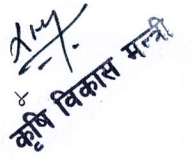 कृषि विकास मन्त्री